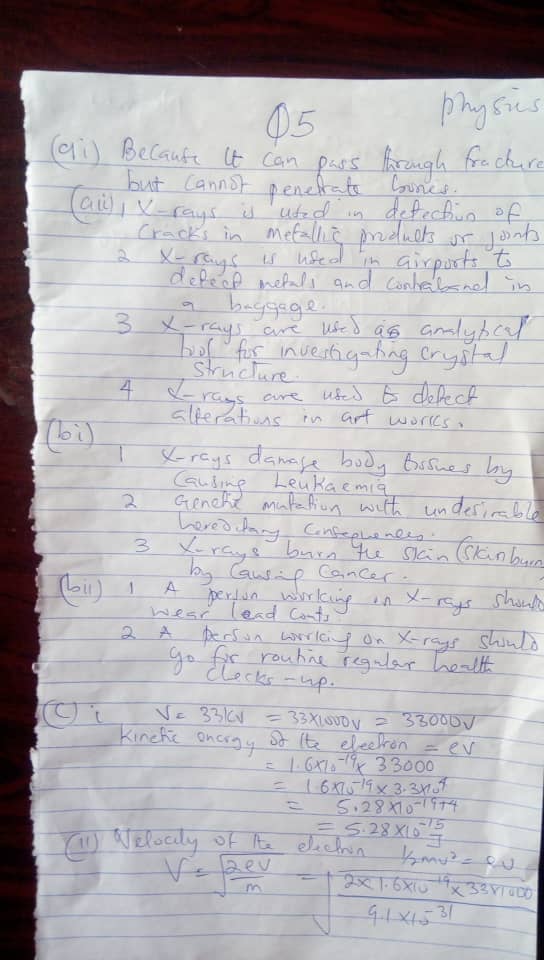 physics
Q5
(ai) Because It can pass through fracture
but cannot penetrate bones.
(aii) 1 X-rays is used in detection of
cracks in metallic products or joints
2 X-rays is used in airports to
detect metals and contraband in
a baggage.
3 X-rays are used as analytical
tool for investigating crystal
structure.
4 X-rays are used to detect
alterations in art works.
(bi)
1 X-rays damage body tissues by
causing Leukaemia
2 Genetic mutation with undesirable
hereditary consequences.
3 X-rays burn the skin (skin burn
by causing cancer.
(bii) 1 A person working in X-rays should
wear lead coats.
2 A person working on X-rays should
go for routine regular health
checks-up.
(C) i V= 33KV = 33X1000V = 33000V
Kinetic energy of the electron = eV
= 1.6X10^-19 x 33000
= 1.6X10^-19 x 3.3x10^4
= 5.28X10^-19+4
= 5.28X10^-15 J
(ii) Velocity of the electron ½mv² = eV
V = √2eV/m = √2x1.6x10^-19 x 33x1000/9.1x10^-31